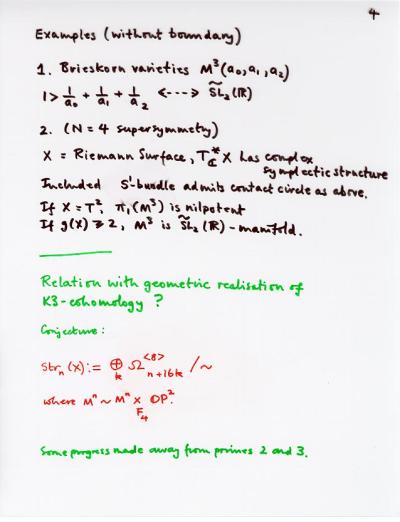 4
Examples (without boundary)
1. Brieskorn varieties M³(a₀,a₁,a₂)
1 > 1/a₀ + 1/a₁ + 1/a₂ <---> S̃L₂(ℝ)
2. (N=4 supersymmetry)
X = Riemann Surface, T*_ℂ X has complex
symplectic structure
Included S¹-bundle admits contact circle as above.
If X = T², π₁(M³) is nilpotent
If g(X) ⩾ 2, M³ is S̃L₂(ℝ)-manifold.
Relation with geometric realisation of
K3-cohomology ?
Conjecture:
Str_n(X) := ⊕_k Ω^{<8>}_{n+16k} / ~
where Mⁿ ~ Mⁿ ×_{F₄} OP².
Some progress made away from primes 2 and 3.